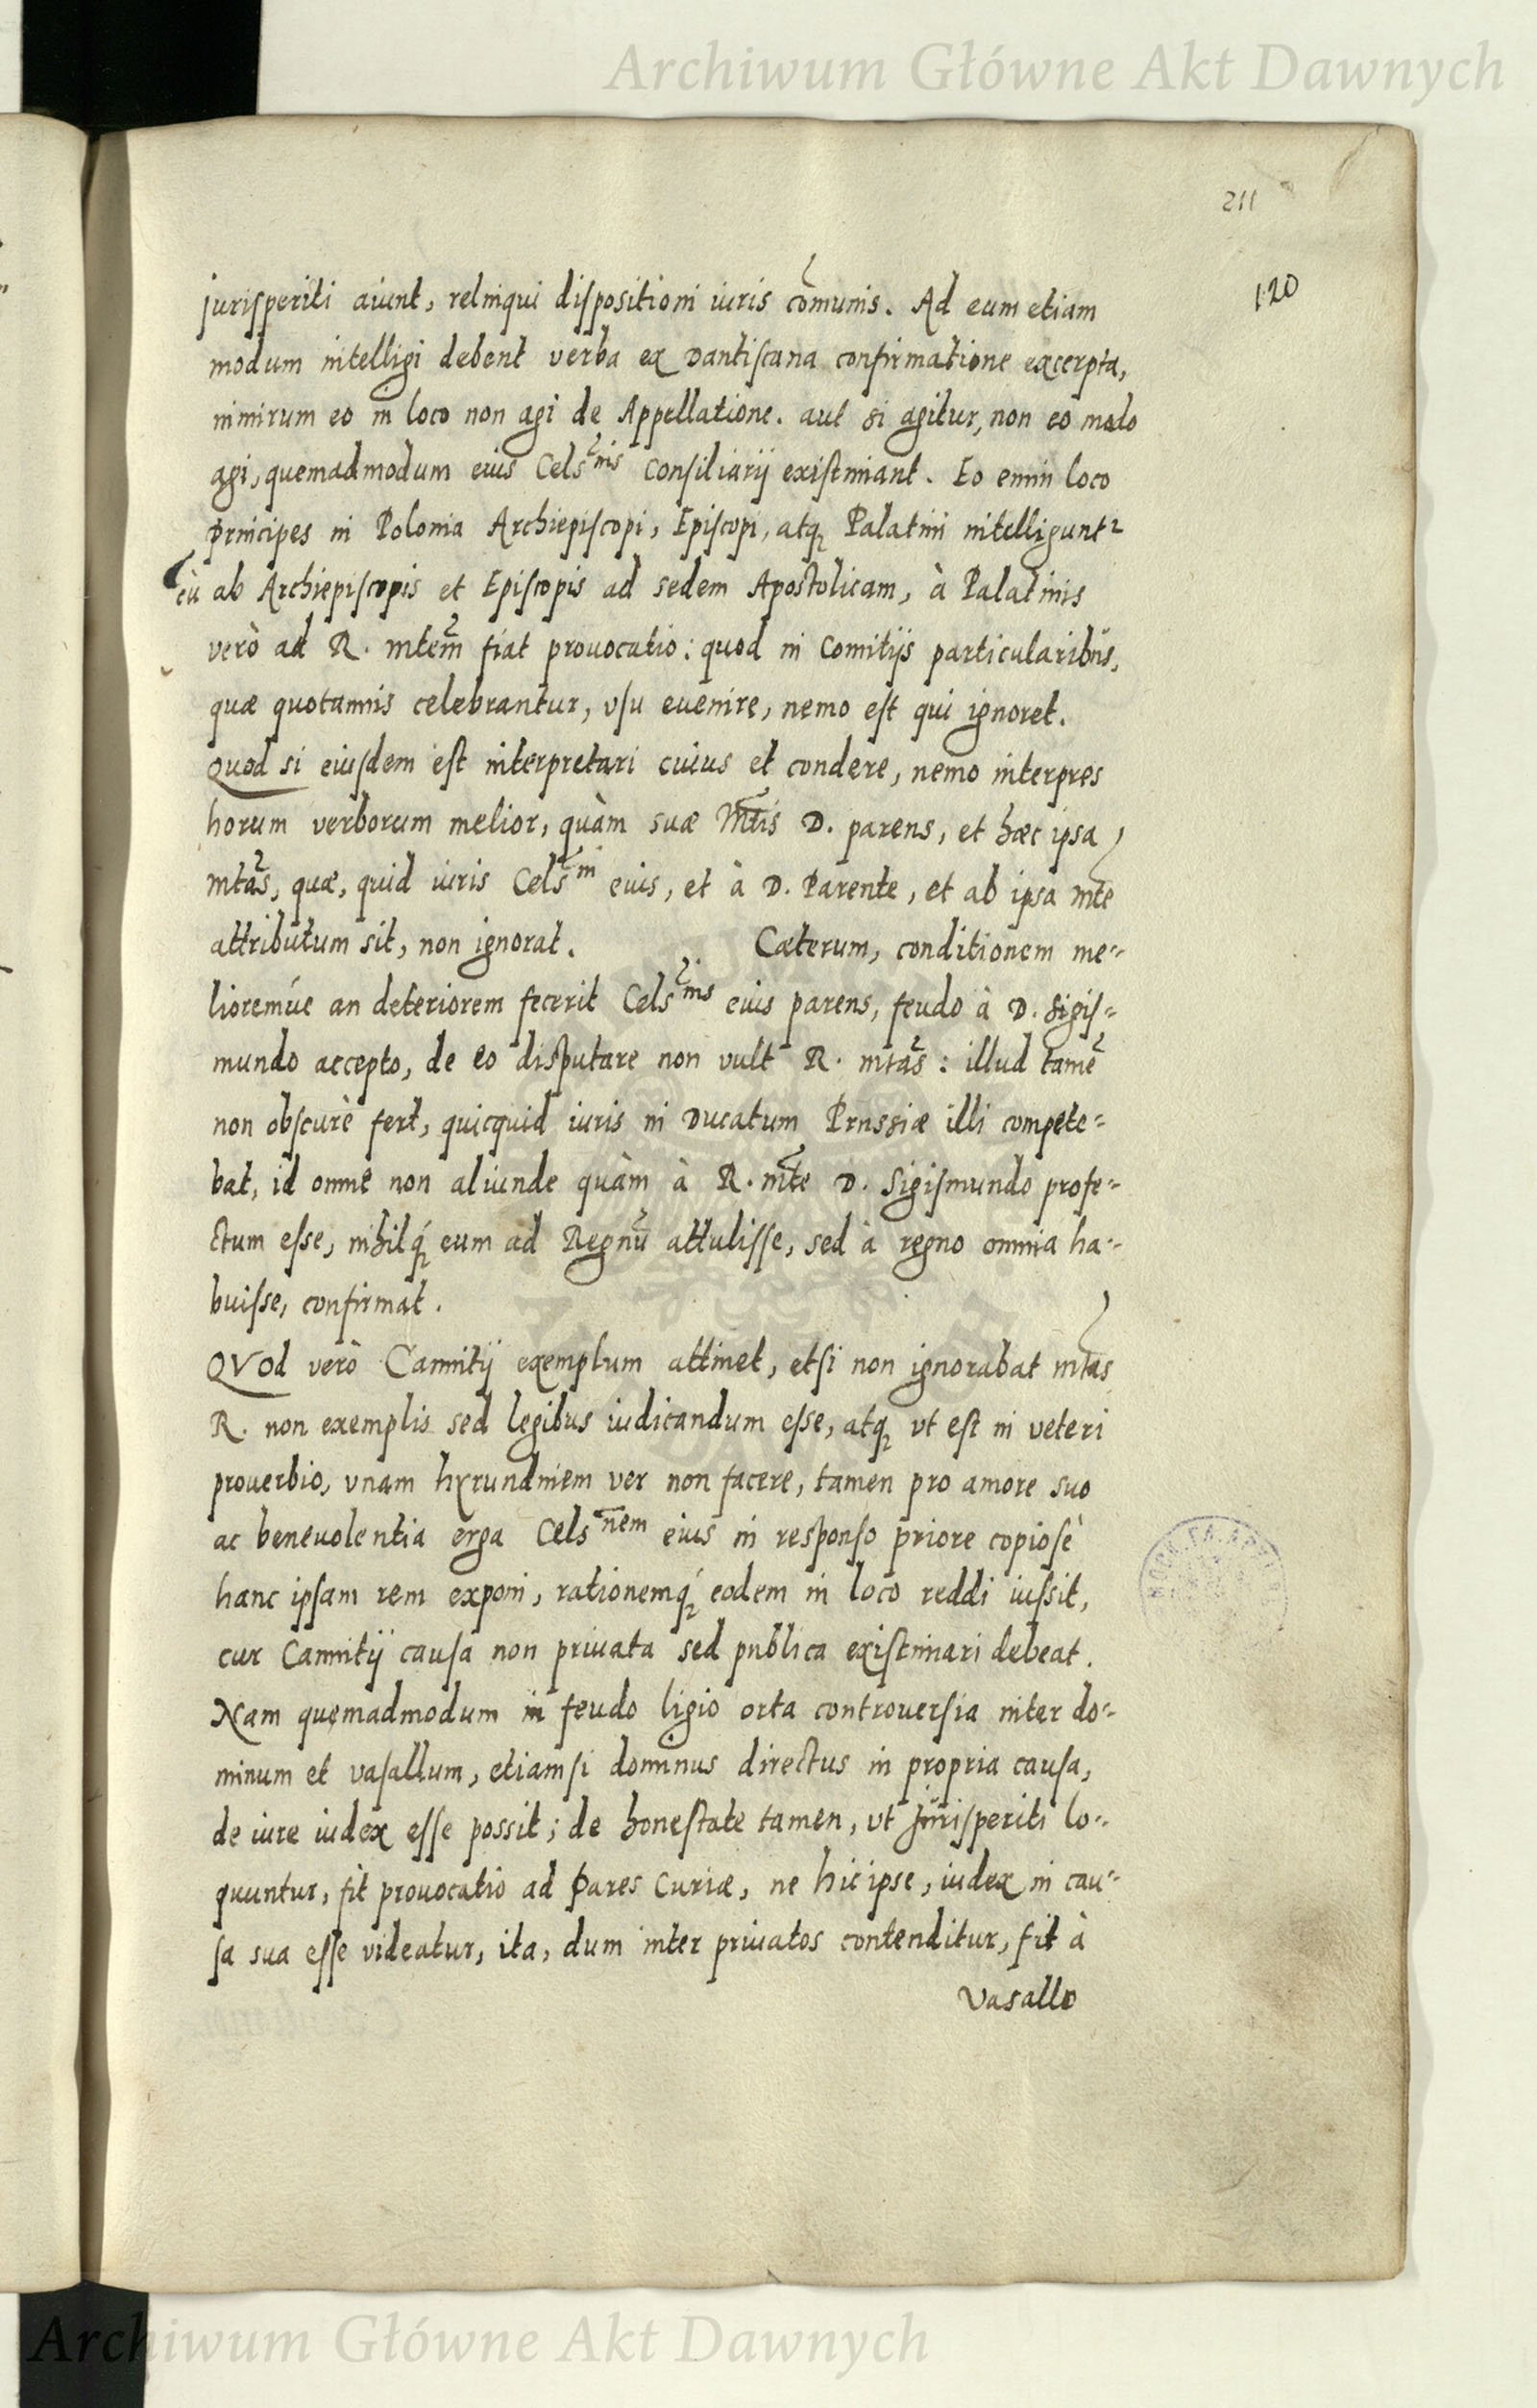 Archiwum Główne Akt Dawnych
211
120
jurisperiti aiunt, relinqui dispositioni iuris cõmunis. Ad eum etiam
modum intelligi debent verba ex Dantiscana confirmatione excerpta,
nimirum eo in loco non agi de Appellatione. aut si agitur, non eo modo
agi, quemadmodum eius Cels^nis Consiliarij existimant. Eo enim loco
principes in Polonia Archiepiscopi, Episcopi, atq₃ Palatini intelligunt²
cũ ab Archiepiscopis et Episcopis ad sedem Apostolicam, à Palatinis
verò ad R. mtem̃ fiat prouocatio: quod in Comitijs particularibus,
quæ quotannis celebrantur, vsu euenire, nemo est qui ignoret.
Quod si eiusdem est interpretari cuius et condere, nemo interpres
horum verborum melior, quàm suæ Mtis D. parens, et hæc ipsa
mtas, quæ, quid iuris Cels^ni eius, et à D. Parente, et ab ipsa mte
attributum sit, non ignorat. Cæterum, conditionem me-
lioremúe an deteriorem fecerit Cels^nis eius parens, feudo à D. Sigis-
mundo accepto, de eo disputare non vult R. mtas: illud tamẽ
non obscurè fert, quicquid iuris in Ducatum Prussiæ illi compete-
bat, id omne non aliunde quàm à R. mte D. Sigismundo profe-
ctum esse, nihilq́₃ eum ad Regnũ attulisse, sed à regno omnia ha-
buisse, confirmat.
QVod verò Cannitij exemplum attinet, etsi non ignorabat mtas
R. non exemplis sed legibus iudicandum esse, atq₃ vt est in veteri
prouerbio, vnam hyrundinem ver non facere, tamen pro amore suo
ac beneuolentia erga Cels^nem eius in responso priore copiosè
hanc ipsam rem exponi, rationemq́₃ eodem in loco reddi iussit,
cur Cannitij causa non priuata sed publica existimari debeat.
Nam quemadmodum in feudo ligio orta controuersia inter do-
minum et vasallum, etiamsi dominus directus in propria causa,
de iure iudex esse possit; de honestate tamen, vt Jurisperiti lo-
quuntur, fit prouocatio ad Pares Curiæ, ne hic ipse, iudex in cau-
sa sua esse videatur, ita, dum inter priuatos contenditur, fit à
vasallo
Archiwum Główne Akt Dawnych